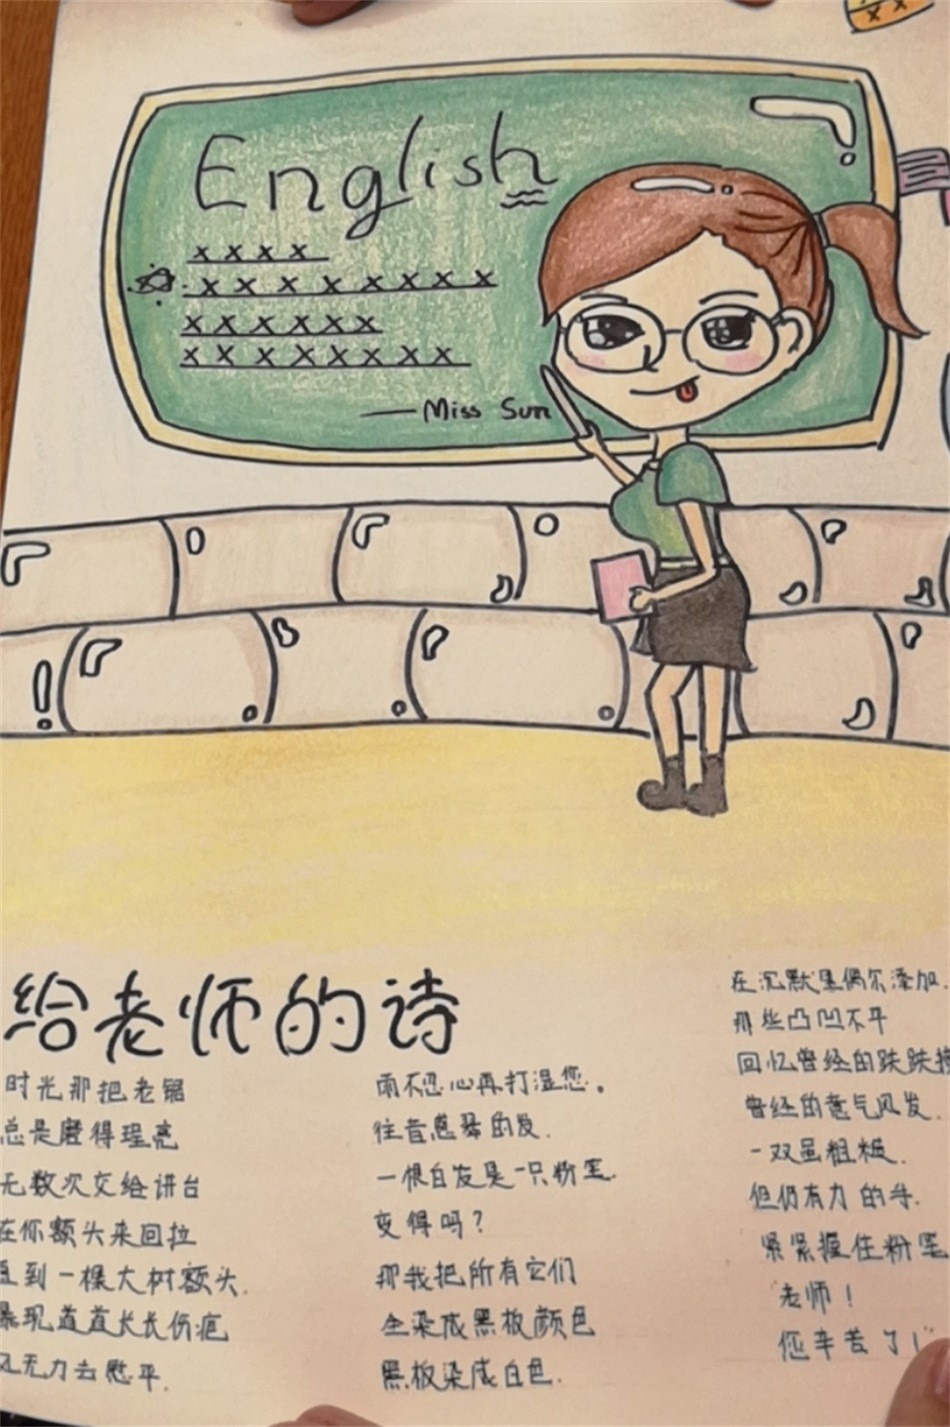 English
x x x x
x x x x x x x x
x x x x x x
x x x x x x x x
— Miss Sun
给老师的诗
时光那把老锯
总是磨得珵亮
无数次交给讲台
在你额头来回拉
直到一棵大树额头.
暴现道道长长伤疤
无力去慰平.
雨不忍心再打湿您.
往昔葱茏的发.
一根白发是一只粉笔.
变得吗?
那我把所有它们
全染成黑板颜色
黑板染成白色.
在沉默里偶尔添加.
那些凸凹不平
回忆曾经的跌跌撞
曾经的意气风发.
一双虽粗糙.
但仍有力的手.
紧紧握住粉笔
老师!
您辛苦了!